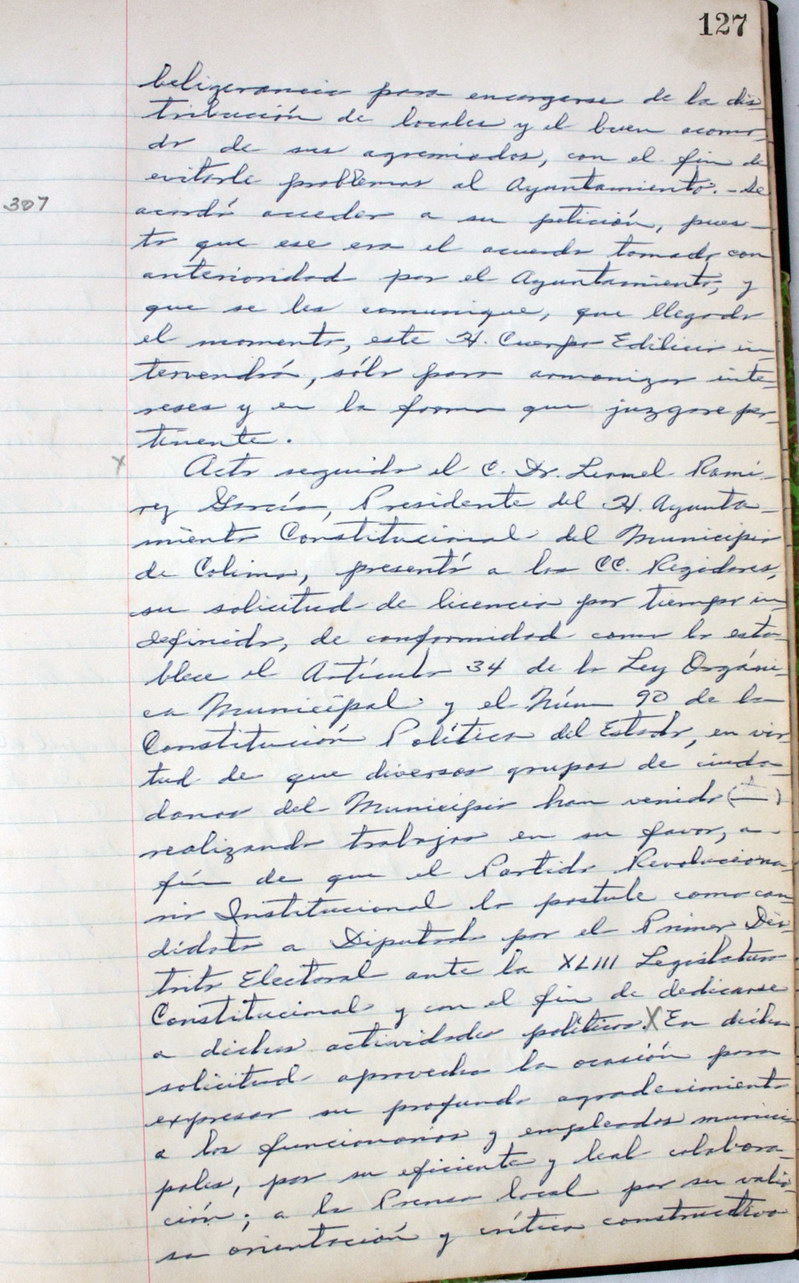 127
beligerancia para encargarse de la dis-
tribución de locales y el buen acomo-
do de sus agremiados, con el fin de
evitarle problemas al Ayuntamiento.- Se
307
acordó acceder a su petición, pues-
to que ese era el acuerdo tomado con
anterioridad por el Ayuntamiento, y
que se les comunique, que llegado
el momento, este H. Cuerpo Edilicio in-
tervendrá, sólo para armonizar inte-
reses y en la forma que juzgare per-
tinente.
x Acto seguido el C. Dr. Leonel Ramí-
rez García, Presidente del H. Ayunta-
miento Constitucional del Municipio
de Colima, presentó a los CC. Regidores,
su solicitud de licencia por tiempo in-
definido, de conformidad como lo esta-
blece el Artículo 34 de la Ley Orgáni-
ca Municipal y el Núm 90 de la
Constitución Política del Estado, en vir-
tud de que diversos grupos de ciuda-
danos del Municipio han venido
realizando trabajos en su favor, a-
fín de que el Partido Revoluciona-
rio Institucional lo postule como can
didato a Diputado por el Primer Dis-
trito Electoral ante la XLIII Legislatura
Constitucional y con el fin de dedicarse
a dichas actividades políticas. X En dicha
solicitud aprovecha la ocasión para
expresar su profundo agradecimiento
a los funcionarios y empleados munici-
pales, por su eficiente y leal colabora-
ción; a la Prensa local por su valio-
sa orientación y crítica constructiva